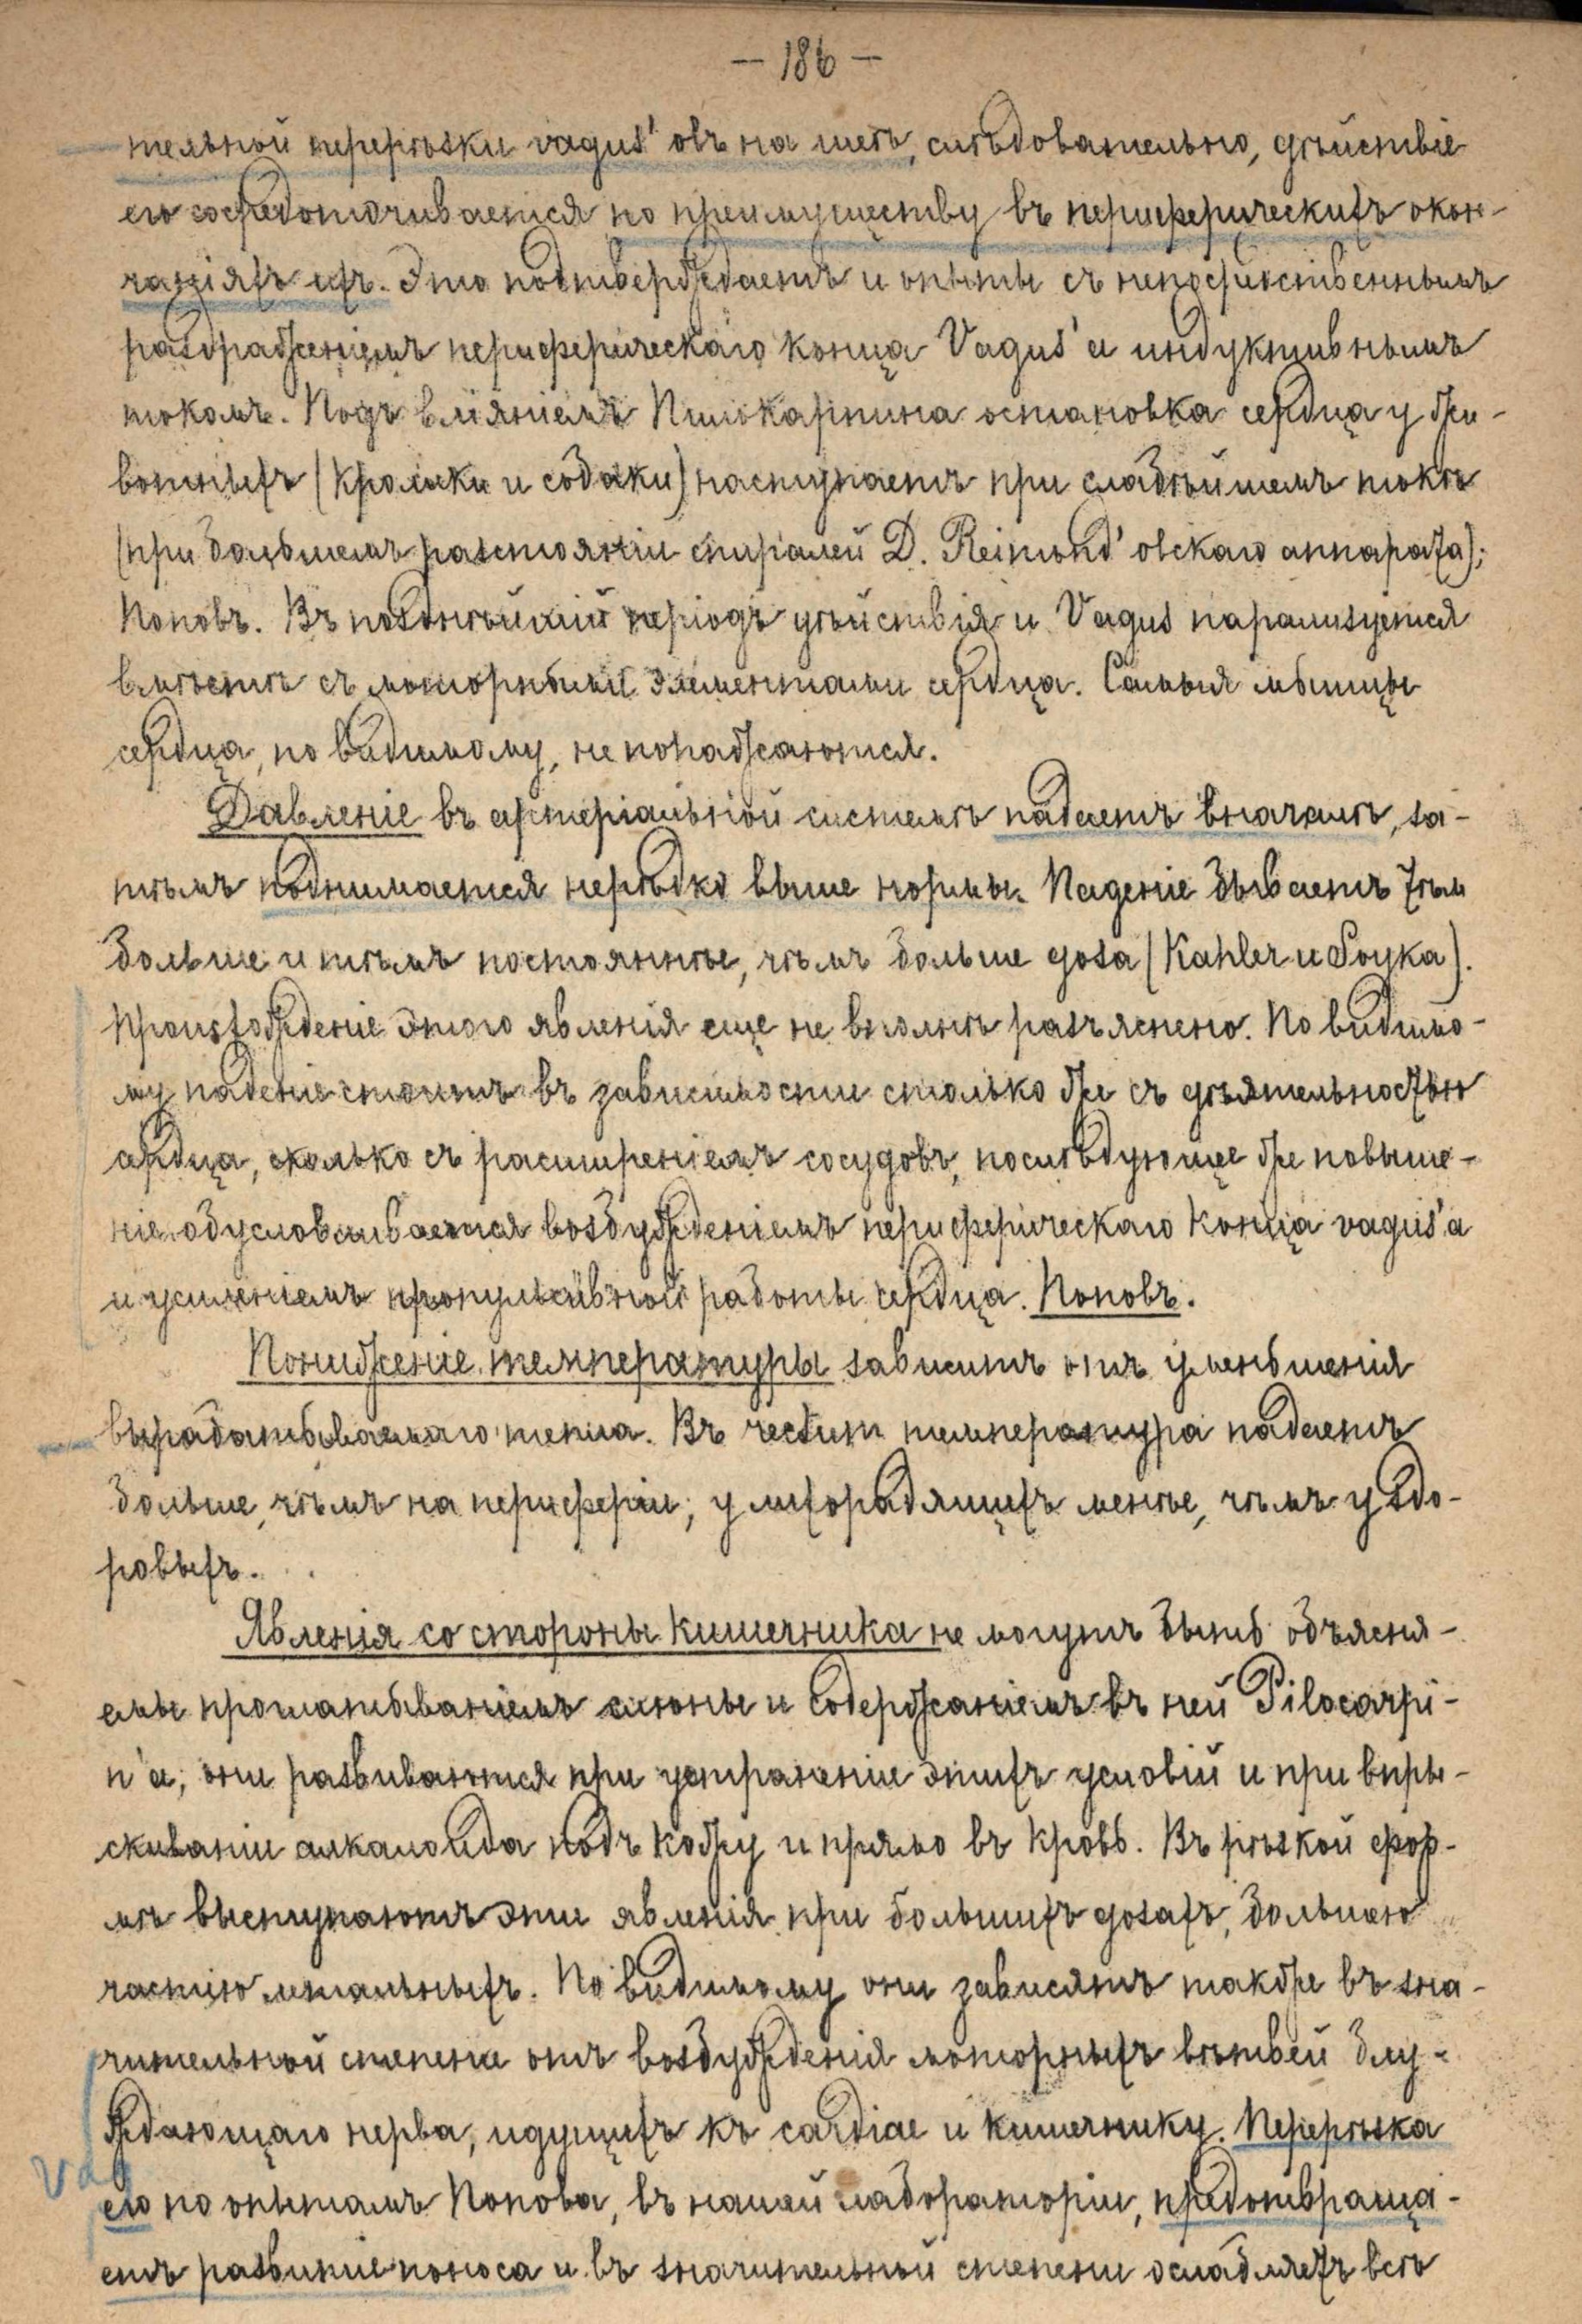 — 186 —
тельной перерѣзки vagus'овъ на шеѣ, слѣдовательно, дѣйствіе
его сосредоточивается по преимуществу въ периферическихъ окон-
чаніяхъ ихъ. Это подтверждаетъ и опыты съ непосредственнымъ
раздраженіемъ периферическаго конца Vagus'а индуктивнымъ
токомъ. Подъ вліяніемъ Пилокарпина остановка сердца у жи-
вотныхъ (кролики и собаки) наступаетъ при слабѣйшемъ токѣ
(при большемъ разстояніи спиралей D. Reimond'овскаго аппарата);
Поповъ. Въ позднѣйшій періодъ дѣйствія и Vagus парализуется
вмѣстѣ съ моторными элементами сердца. Самыя мышцы
сердца, по видимому, не поражаются.
Давленіе въ артеріальной системѣ падаетъ вначалѣ, за-
тѣмъ поднимается нерѣдко выше нормы. Паденіе бываетъ тѣм
больше и тѣмъ постояннѣе, чѣмъ больше доза (Kahler и Соука).
Происхожденіе этого явленія еще не вполнѣ разъяснено. По видимо-
му паденіе стоитъ въ зависимости столько же съ дѣятельностью
сердца, сколько съ расширеніемъ сосудовъ, послѣдующее же повыше-
ніе обусловливается возбужденіемъ периферическаго конца vagus'а
и усиленіемъ пропульсивной работы сердца. Поповъ.
Пониженіе температуры зависитъ отъ уменьшенія
вырабатываемаго тепла. Въ rectum температура падаетъ
больше, чѣмъ на периферіи; у лихорадящихъ менѣе, чѣмъ у здо-
ровыхъ.
Явленія со стороны кишечника не могутъ быть объясня-
емы проглатываніемъ слюны и содержаніемъ въ ней Pilocarpi-
n'а; они развиваются при устраненіе этихъ условій и при впры-
скиваніи алкалоида подъ кожу и прямо въ кровь. Въ рѣзкой фор-
мѣ выступаютъ эти явленія при большихъ дозахъ, большею
частію летальныхъ. По видимому они зависятъ также въ зна-
чительной степени отъ возбужденія моторныхъ вѣтвей блу-
ждающаго нерва, идущихъ къ cardiae и кишечнику. Перерѣзка
его по опытамъ Попова, въ нашей лабораторіи, предотвраща-
етъ развитіе поноса и въ значительной степени ослабляетъ всѣ